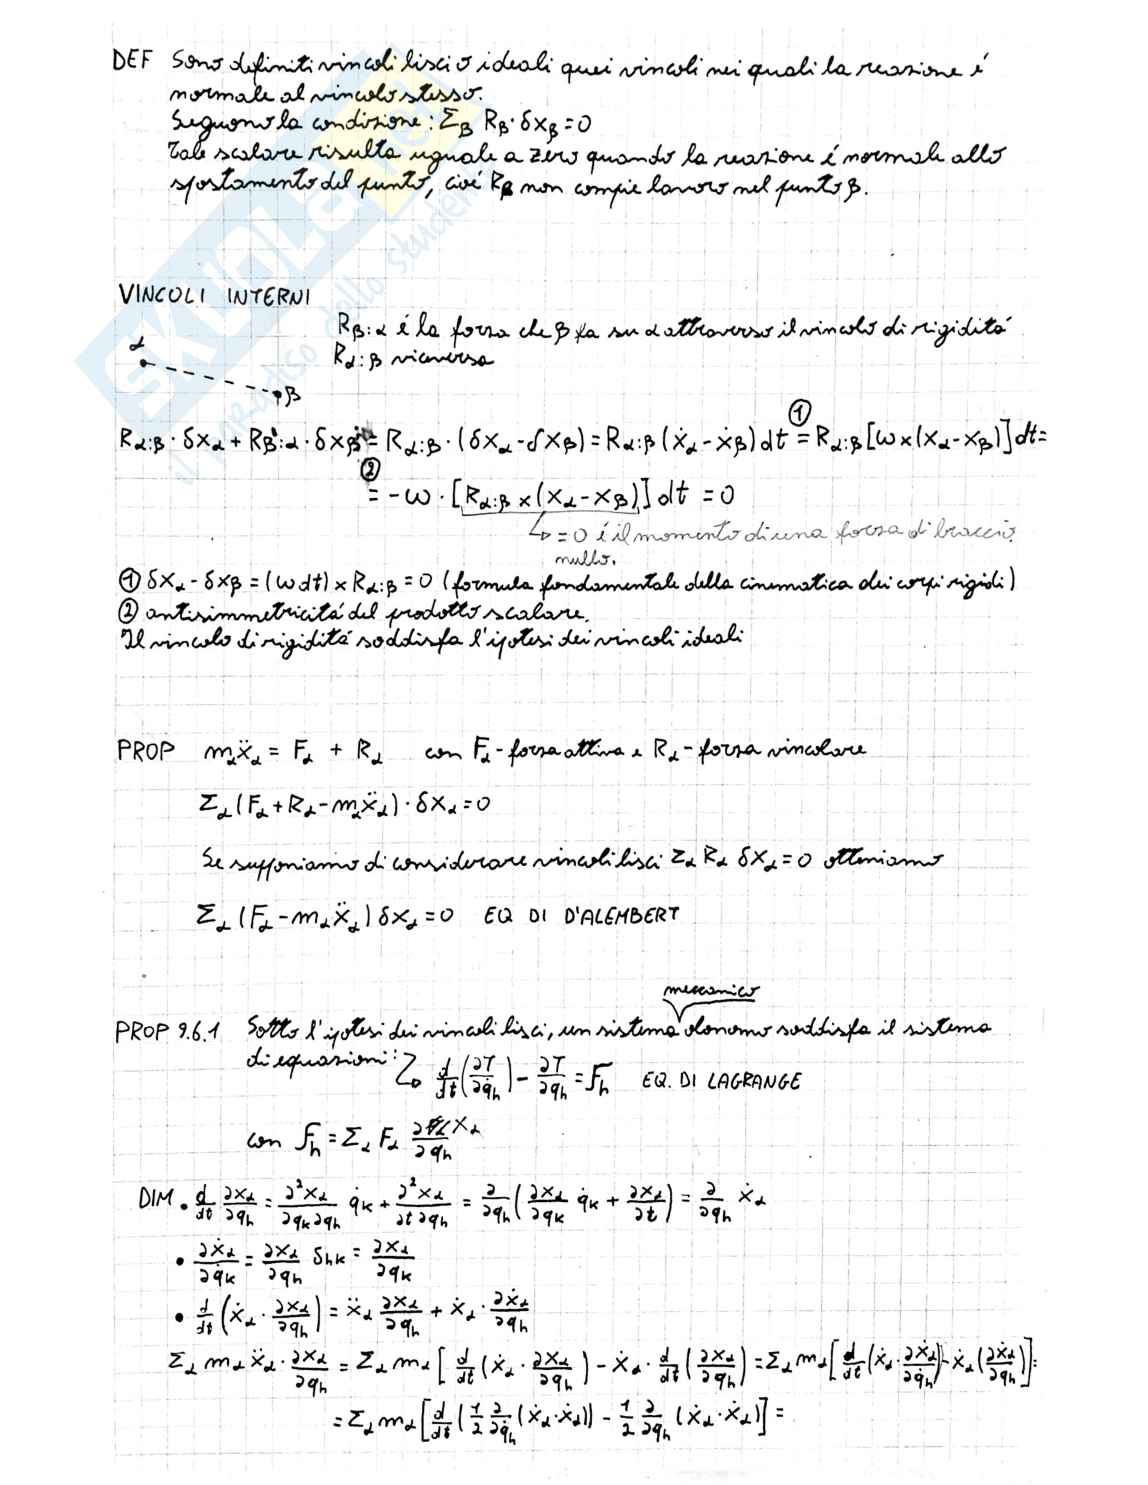 DEF Sono definiti vincoli lisci o ideali quei vincoli nei quali la reazione é
normale al vincolo stesso.
Seguono la condizione: Σᵦ Rᵦ · δxᵦ = 0
Tale scalare risulta uguale a zero quando la reazione é normale allo
spostamento del punto, cioé Rᵦ non compie lavoro nel punto β.
VINCOLI INTERNI
R_β:α é la forza che β fa su α attraverso il vincolo di rigiditá
R_α:β viceversa
α
β
R_α:β · δx_α + R_β:α · δx_β = R_α:β · (δx_α - δx_β) = R_α:β (ẋ_α - ẋ_β) dt =① R_α:β [ω × (x_α - x_β)] dt =
=② -ω · [R_α:β × (x_α - x_β)] dt = 0
↳ = 0 é il momento di una forza di braccio
nullo.
① δx_α - δx_β = (ω dt) × R_α:β = 0 (formula fondamentale della cinematica dei corpi rigidi)
② antisimmetricitá del prodotto scalare.
Il vincolo di rigiditá soddisfa l'ipotesi dei vincoli ideali
PROP m_α ẍ_α = F_α + R_α con F_α - forza attiva e R_α - forza vincolare
Σ_α (F_α + R_α - m_α ẍ_α) · δx_α = 0
Se supponiamo di considerare vincoli lisci Σ_α R_α δx_α = 0 otteniamo
Σ_α (F_α - m_α ẍ_α) δx_α = 0 EQ DI D'ALEMBERT
meccanico
PROP 9.6.1 Sotto l'ipotesi dei vincoli lisci, un sistema olonomo soddisfa il sistema
di equazioni: ↳ d/dt (∂T/∂q̇_h) - ∂T/∂q_h = F_h EQ. DI LAGRANGE
con F_h = Σ_α F_α ∂x_α/∂q_h
DIM • d/dt ∂x_α/∂q_h = ∂²x_α/∂q_k∂q_h q̇_k + ∂²x_α/∂t∂q_h = ∂/∂q_h (∂x_α/∂q_k q̇_k + ∂x_α/∂t) = ∂/∂q_h ẋ_α
• ∂ẋ_α/∂q̇_k = ∂x_α/∂q_h δ_hk = ∂x_α/∂q_k
• d/dt (ẋ_α · ∂x_α/∂q_h) = ẍ_α ∂x_α/∂q_h + ẋ_α · ∂ẋ_α/∂q_h
Σ_α m_α ẍ_α · ∂x_α/∂q_h = Σ_α m_α [d/dt (ẋ_α · ∂x_α/∂q_h) - ẋ_α · d/dt (∂x_α/∂q_h) = Σ_α m_α [d/dt (ẋ_α · ∂ẋ_α/∂q̇_h) - ẋ_α (∂ẋ_α/∂q_h)] =
= Σ_α m_α [d/dt (1/2 ∂/∂q̇_h (ẋ_α · ẋ_α)) - 1/2 ∂/∂q_h (ẋ_α · ẋ_α)] =
SKUOLA.net
il paradiso dello studente